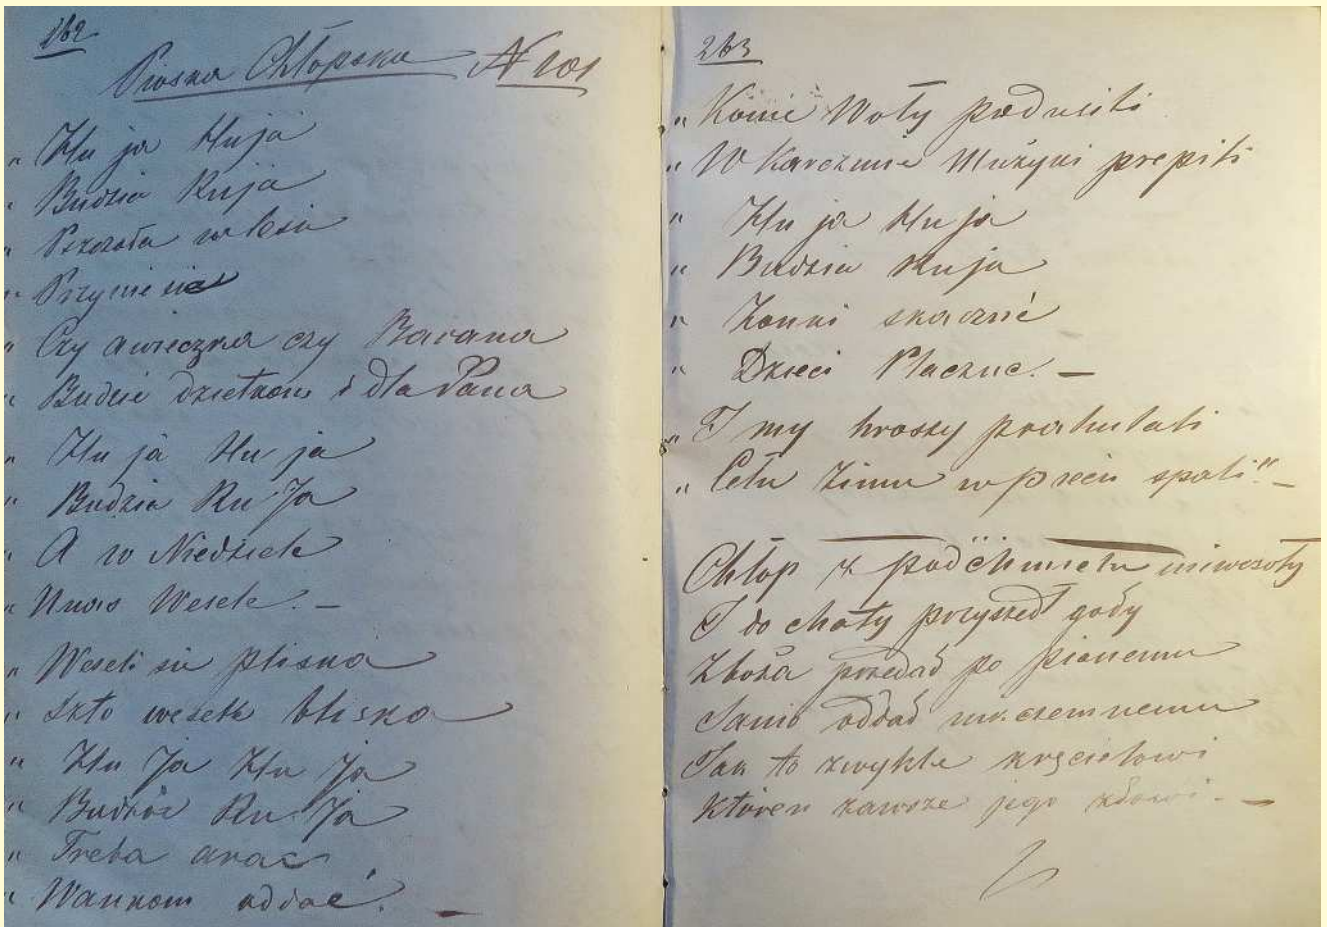 262
Piosna Chłopska N 101
„ Hu ja Huja
„ Budzia Kuja
„ Pszczoła w lesia
„ Przyniesie
„ Czy awieczka czy Barana
„ Budzie dzietkom i dla Pana
„ Hu ja Hu ja
„ Budzia Ku Ja
„ A w Niedziele
„ Unas Wesele. –
„ Weseli sie pliska
„ szto wesele blisko
„ Hu Ja Hu Ja
„ Budzie Ku Ja
„ Treba arać
„ Wankom oddać. –
263
„ Konie Woły padusili
„ W Karczmie Mużyki prepili
„ Hu ja Hu ja
„ Budzia Kuja
„ Żonki skaczuć
„ Dzieci Płaczuc. –
„ I my hroszy prahulali
„ Cełu zimu w preciu spali." –
Chłop z pod Chmielu niwesoły
I do chaty przyszedł goły
Zboża przedał po pianemu
Siano oddał niczemnemu
Jak to zwykle kręcielowi
Któren zawsze jego –